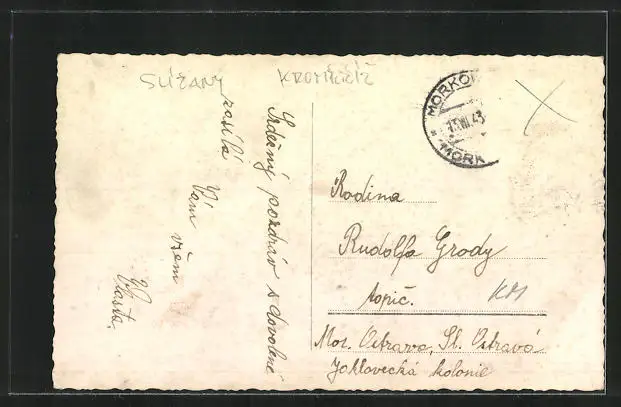 SLÍŽANY KROMĚŘÍŽ
Srdečný pozdrav s dovolené
zasílá
Vám všem
Vlasta.
MORKOV
13.VII.43
MORK
Rodina
Rudolfa Grody
topič.
KM
Mor. Ostrava, Sl. Ostrava
Jaklovecká kolonie